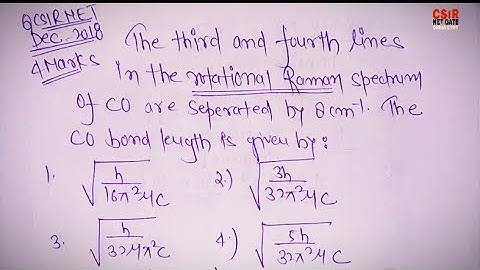 QCSIR NET
Dec. 2018
4 Marks
CSIR
NET GATE
The third and fourth lines
in the rotational Raman spectrum
of CO are seperated by 8 cm⁻¹. The
CO bond length is given by:
1. √(h/16π²μC) 2.) √(3h/32π²μC)
3. √(h/32μπ²C) 4.) √(5h/32π²μC)